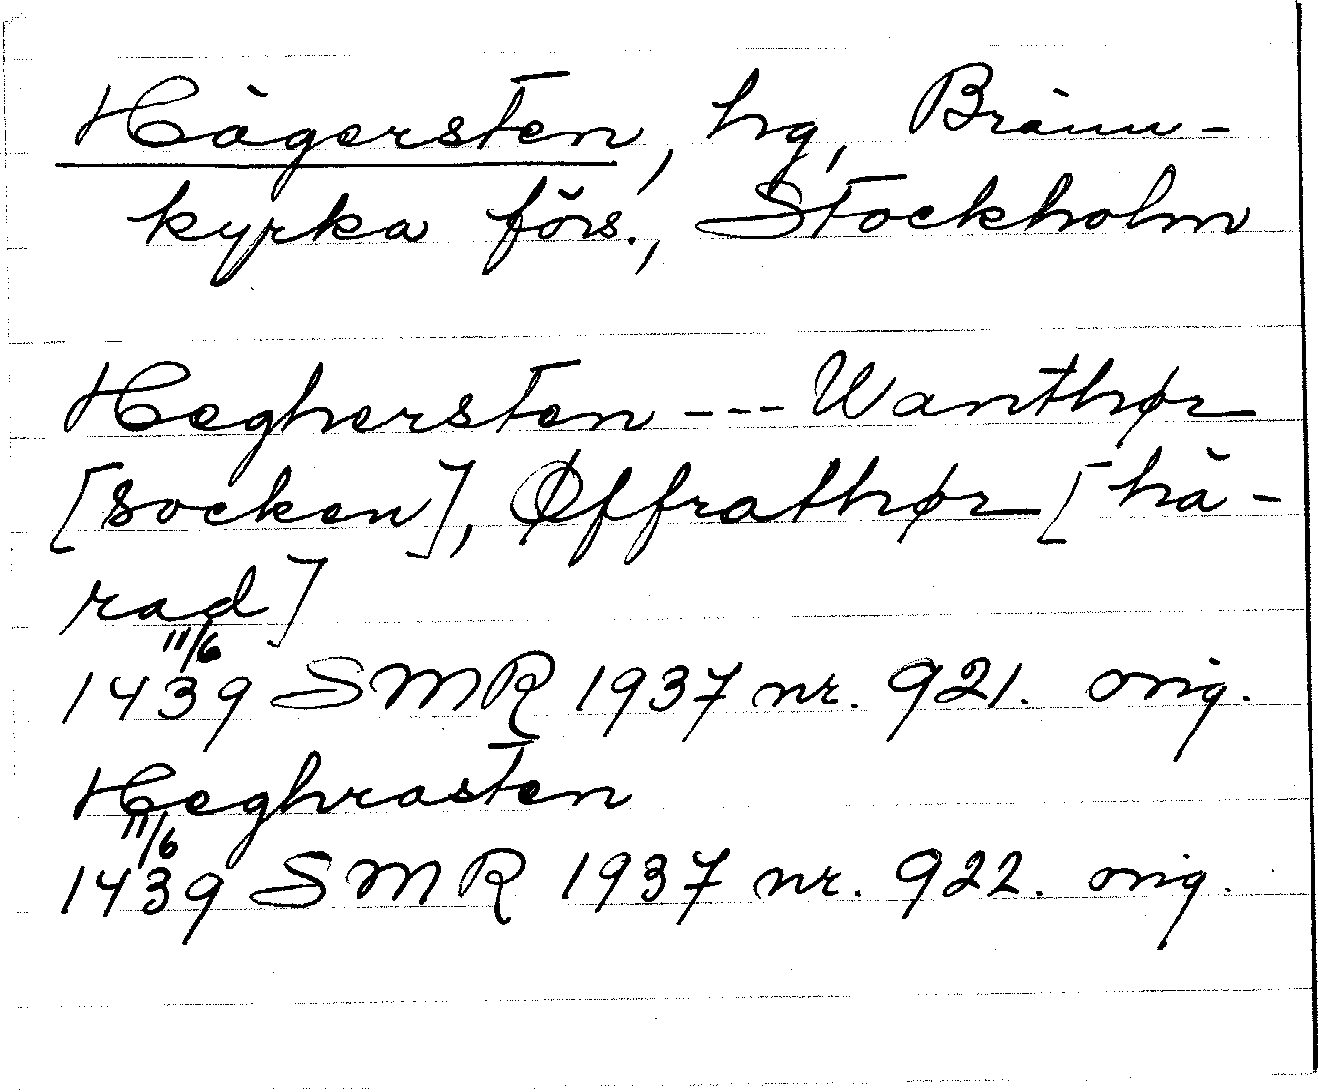 Hägersten, hg, Bränn-
kyrka förs., Stockholm
Heghersten --- Wanthør
[socken], Øffrathør [hä-
rad]
11/6
1439 SMR 1937 nr. 921. orig.
Heghrasten
11/6
1439 SMR 1937 nr. 922. orig.